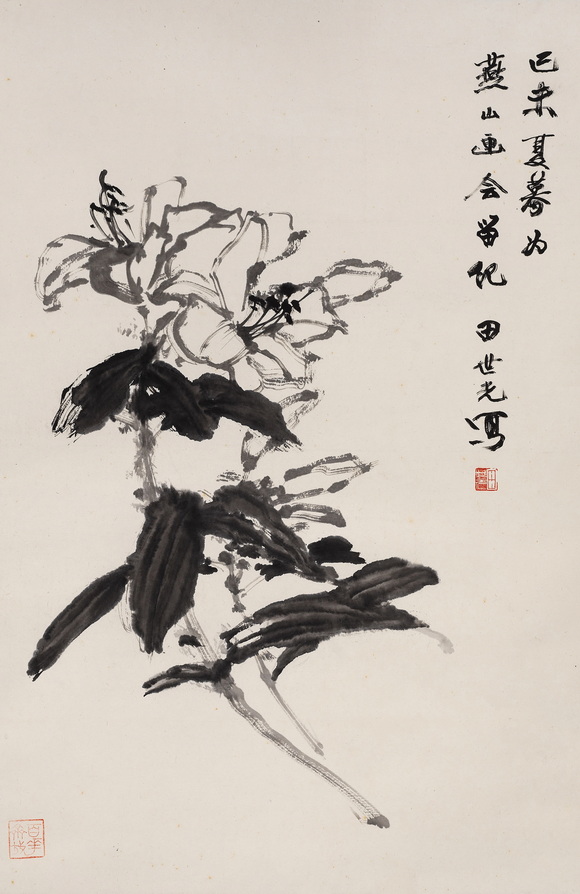 己未夏暮为
燕山画会留纪 田世光写